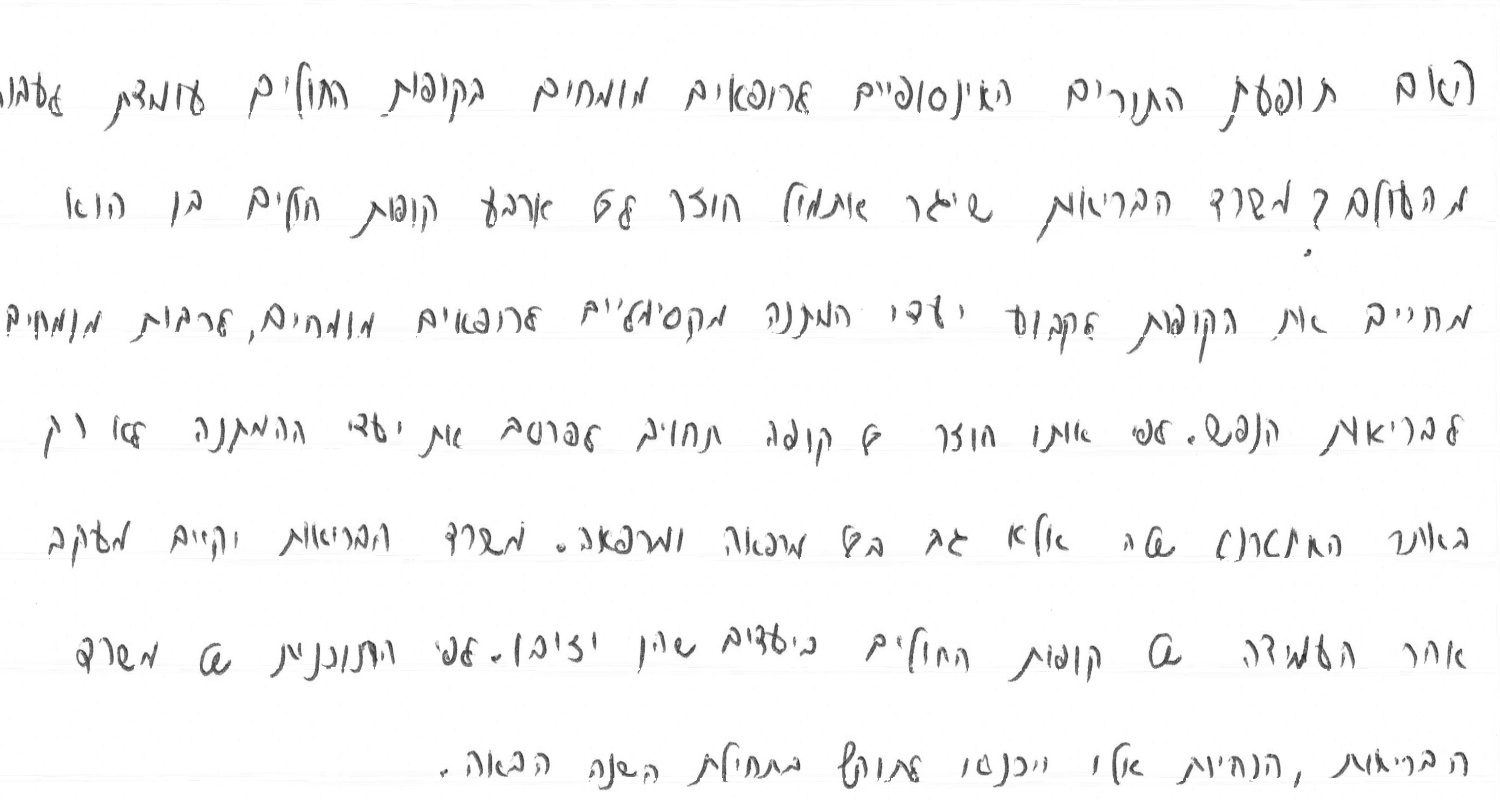 האם תופעת התורים האינסופיים לרופאים מומחים בקופות החולים עומדת לעבור
מהעולם? משרד הבריאות שיגר אתמול חוזר לכל ארבע קופות חולים בו הוא
מחייב את הקופות לקבוע יעדי המתנה מקסימליים לרופאים מומחים, לרבות מומחים
לבריאות הנפש. לפי אותו חוזר כל קופה תחויב לפרסם את יעדי ההמתנה לא רק
באתר האינטרנט שלה אלא גם בכל מרפאה ומרפאה. משרד הבריאות יקיים מעקב
אחר העמידה של קופות החולים ביעדים שהן יציבו. לפי התוכנית של משרד
הבריאות, הנחיות אלו ייכנסו לתוקף בתחילת השנה הבאה.